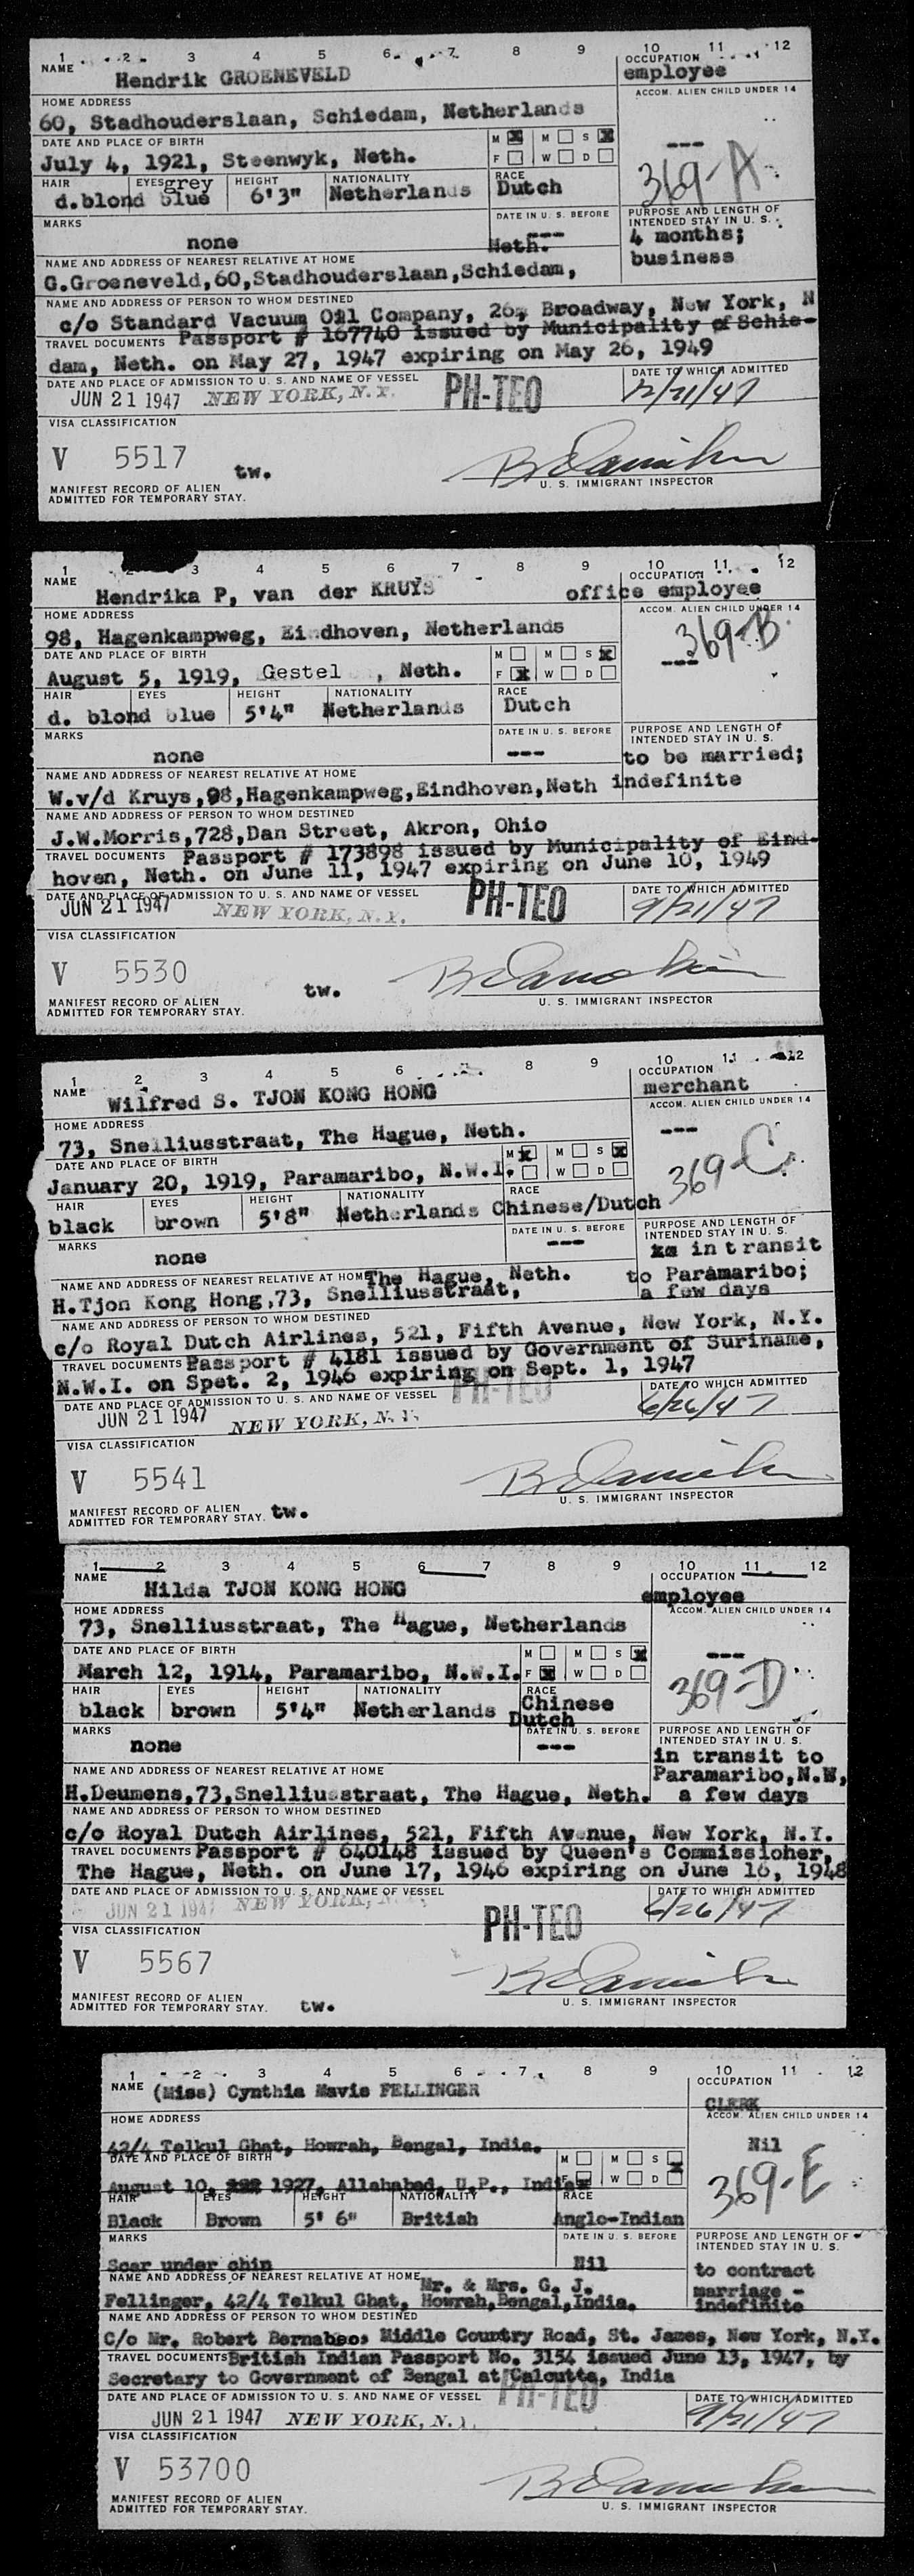 1 2 3 4 5 6 7 8 9 10 11 12
NAME Hendrik GROENEVELD OCCUPATION employee
HOME ADDRESS ACCOM. ALIEN CHILD UNDER 14
60, Stadhouderslaan, Schiedam, Netherlands
DATE AND PLACE OF BIRTH M M S ---
July 4, 1921, Steenwyk, Neth. F W D 369-A
HAIR EYES grey HEIGHT NATIONALITY RACE
d.blond blue 6'3" Netherlands Dutch
MARKS DATE IN U. S. BEFORE PURPOSE AND LENGTH OF INTENDED STAY IN U. S.
none --- 4 months;
Neth. business
NAME AND ADDRESS OF NEAREST RELATIVE AT HOME
G.Groeneveld,60,Stadhouderslaan,Schiedam,
NAME AND ADDRESS OF PERSON TO WHOM DESTINED
c/o Standard Vacuum Oil Company, 26, Broadway, New York, N
TRAVEL DOCUMENTS Passport # 167740 issued by Municipality of Schie-
dam, Neth. on May 27, 1947 expiring on May 26, 1949
DATE AND PLACE OF ADMISSION TO U. S. AND NAME OF VESSEL DATE TO WHICH ADMITTED
JUN 21 1947 NEW YORK, N.Y. PH-TEO 12/21/47
VISA CLASSIFICATION
V 5517 tw.
U. S. IMMIGRANT INSPECTOR
MANIFEST RECORD OF ALIEN
ADMITTED FOR TEMPORARY STAY.
1 3 4 5 6 7 8 9 10 11 12
NAME OCCUPATION
Hendrika P, van der KRUYS office employee
HOME ADDRESS ACCOM. ALIEN CHILD UNDER 14
98, Hagenkampweg, Eindhoven, Netherlands 369-B
DATE AND PLACE OF BIRTH M M S ---
August 5, 1919, Gestel , Neth. F W D
HAIR EYES HEIGHT NATIONALITY RACE
d. blond blue 5'4" Netherlands Dutch
MARKS DATE IN U. S. BEFORE PURPOSE AND LENGTH OF INTENDED STAY IN U. S.
none --- to be married;
NAME AND ADDRESS OF NEAREST RELATIVE AT HOME
W.v/d Kruys,98,Hagenkampweg,Eindhoven,Neth indefinite
NAME AND ADDRESS OF PERSON TO WHOM DESTINED
J.W.Morris,728,Dan Street, Akron, Ohio
TRAVEL DOCUMENTS Passport # 173898 issued by Municipality of Eind-
hoven, Neth. on June 11, 1947 expiring on June 10, 1949
DATE AND PLACE OF ADMISSION TO U. S. AND NAME OF VESSEL DATE TO WHICH ADMITTED
JUN 21 1947 NEW YORK, N.Y. PH-TEO 9/21/47
VISA CLASSIFICATION
V 5530 tw.
U. S. IMMIGRANT INSPECTOR
MANIFEST RECORD OF ALIEN
ADMITTED FOR TEMPORARY STAY.
1 2 3 4 5 6 8 9 10 11 12
NAME Wilfred S. TJON KONG HONG OCCUPATION merchant
HOME ADDRESS ACCOM. ALIEN CHILD UNDER 14
73, Snelliusstraat, The Hague, Neth. ---
DATE AND PLACE OF BIRTH M M S
January 20, 1919, Paramaribo, N.W.I. F W D 369-C
HAIR EYES HEIGHT NATIONALITY RACE
black brown 5'8" Netherlands Chinese/Dutch
MARKS DATE IN U. S. BEFORE PURPOSE AND LENGTH OF INTENDED STAY IN U. S.
none --- in transit
NAME AND ADDRESS OF NEAREST RELATIVE AT HOME The Hague, Neth. to Paramaribo;
H.Tjon Kong Hong,73, Snelliusstraat, a few days
NAME AND ADDRESS OF PERSON TO WHOM DESTINED
c/o Royal Dutch Airlines, 521, Fifth Avenue, New York, N.Y.
TRAVEL DOCUMENTS Passport # 4181 issued by Government of Suriname,
N.W.I. on Spet. 2, 1946 expiring on Sept. 1, 1947
DATE AND PLACE OF ADMISSION TO U. S. AND NAME OF VESSEL PH-TEO DATE TO WHICH ADMITTED
JUN 21 1947 NEW YORK, N.Y. 6/26/47
VISA CLASSIFICATION
V 5541
U. S. IMMIGRANT INSPECTOR
MANIFEST RECORD OF ALIEN
ADMITTED FOR TEMPORARY STAY. tw.
1 2 3 4 5 6 7 8 9 10 11 12
NAME OCCUPATION
Hilda TJON KONG HONG employee
HOME ADDRESS ACCOM. ALIEN CHILD UNDER 14
73, Snelliusstraat, The Hague, Netherlands
DATE AND PLACE OF BIRTH M M S ---
March 12, 1914, Paramaribo, N.W.I. F W D 369-D
HAIR EYES HEIGHT NATIONALITY RACE
black brown 5'4" Netherlands Chinese
Dutch
MARKS DATE IN U. S. BEFORE PURPOSE AND LENGTH OF INTENDED STAY IN U. S.
none --- in transit to
NAME AND ADDRESS OF NEAREST RELATIVE AT HOME Paramaribo,N.W,
H.Deumens,73,Snelliusstraat, The Hague, Neth. a few days
NAME AND ADDRESS OF PERSON TO WHOM DESTINED
c/o Royal Dutch Airlines, 521, Fifth Avenue, New York, N.Y.
TRAVEL DOCUMENTS Passport # 640148 issued by Queen's Commissioher,
The Hague, Neth. on June 17, 1946 expiring on June 16, 1948
DATE AND PLACE OF ADMISSION TO U. S. AND NAME OF VESSEL DATE TO WHICH ADMITTED
JUN 21 1947 NEW YORK, PH-TEO 6/26/47
VISA CLASSIFICATION
V 5567
U. S. IMMIGRANT INSPECTOR
MANIFEST RECORD OF ALIEN
ADMITTED FOR TEMPORARY STAY. tw.
1 2 3 4 5 6 7 8 9 10 11 12
NAME (Miss) Cynthia Mavis FELLINGER OCCUPATION
CLERK
HOME ADDRESS ACCOM. ALIEN CHILD UNDER 14
42/4 Telkul Ghat, Howrah, Bengal, India. Nil
DATE AND PLACE OF BIRTH M M S
August 10, 1927, Allahabad, U.P., India F W D 369-E
HAIR EYES HEIGHT NATIONALITY RACE
Black Brown 5' 6" British Anglo-Indian
MARKS DATE IN U. S. BEFORE PURPOSE AND LENGTH OF INTENDED STAY IN U. S.
Scar under chin Nil to contract
NAME AND ADDRESS OF NEAREST RELATIVE AT HOME Mr. & Mrs. G. J. marriage -
Fellinger, 42/4 Telkul Ghat, Howrah,Bengal,India. indefinite
NAME AND ADDRESS OF PERSON TO WHOM DESTINED
C/o Mr. Robert Bernabeo, Middle Country Road, St. James, New York, N.Y.
TRAVEL DOCUMENTS British Indian Passport No. 3154 issued June 13, 1947, by
Secretary to Government of Bengal at Calcutta, India
DATE AND PLACE OF ADMISSION TO U. S. AND NAME OF VESSEL PH-TEO DATE TO WHICH ADMITTED
JUN 21 1947 NEW YORK, N.Y. 9/21/47
VISA CLASSIFICATION
V 53700
U. S. IMMIGRANT INSPECTOR
MANIFEST RECORD OF ALIEN
ADMITTED FOR TEMPORARY STAY.